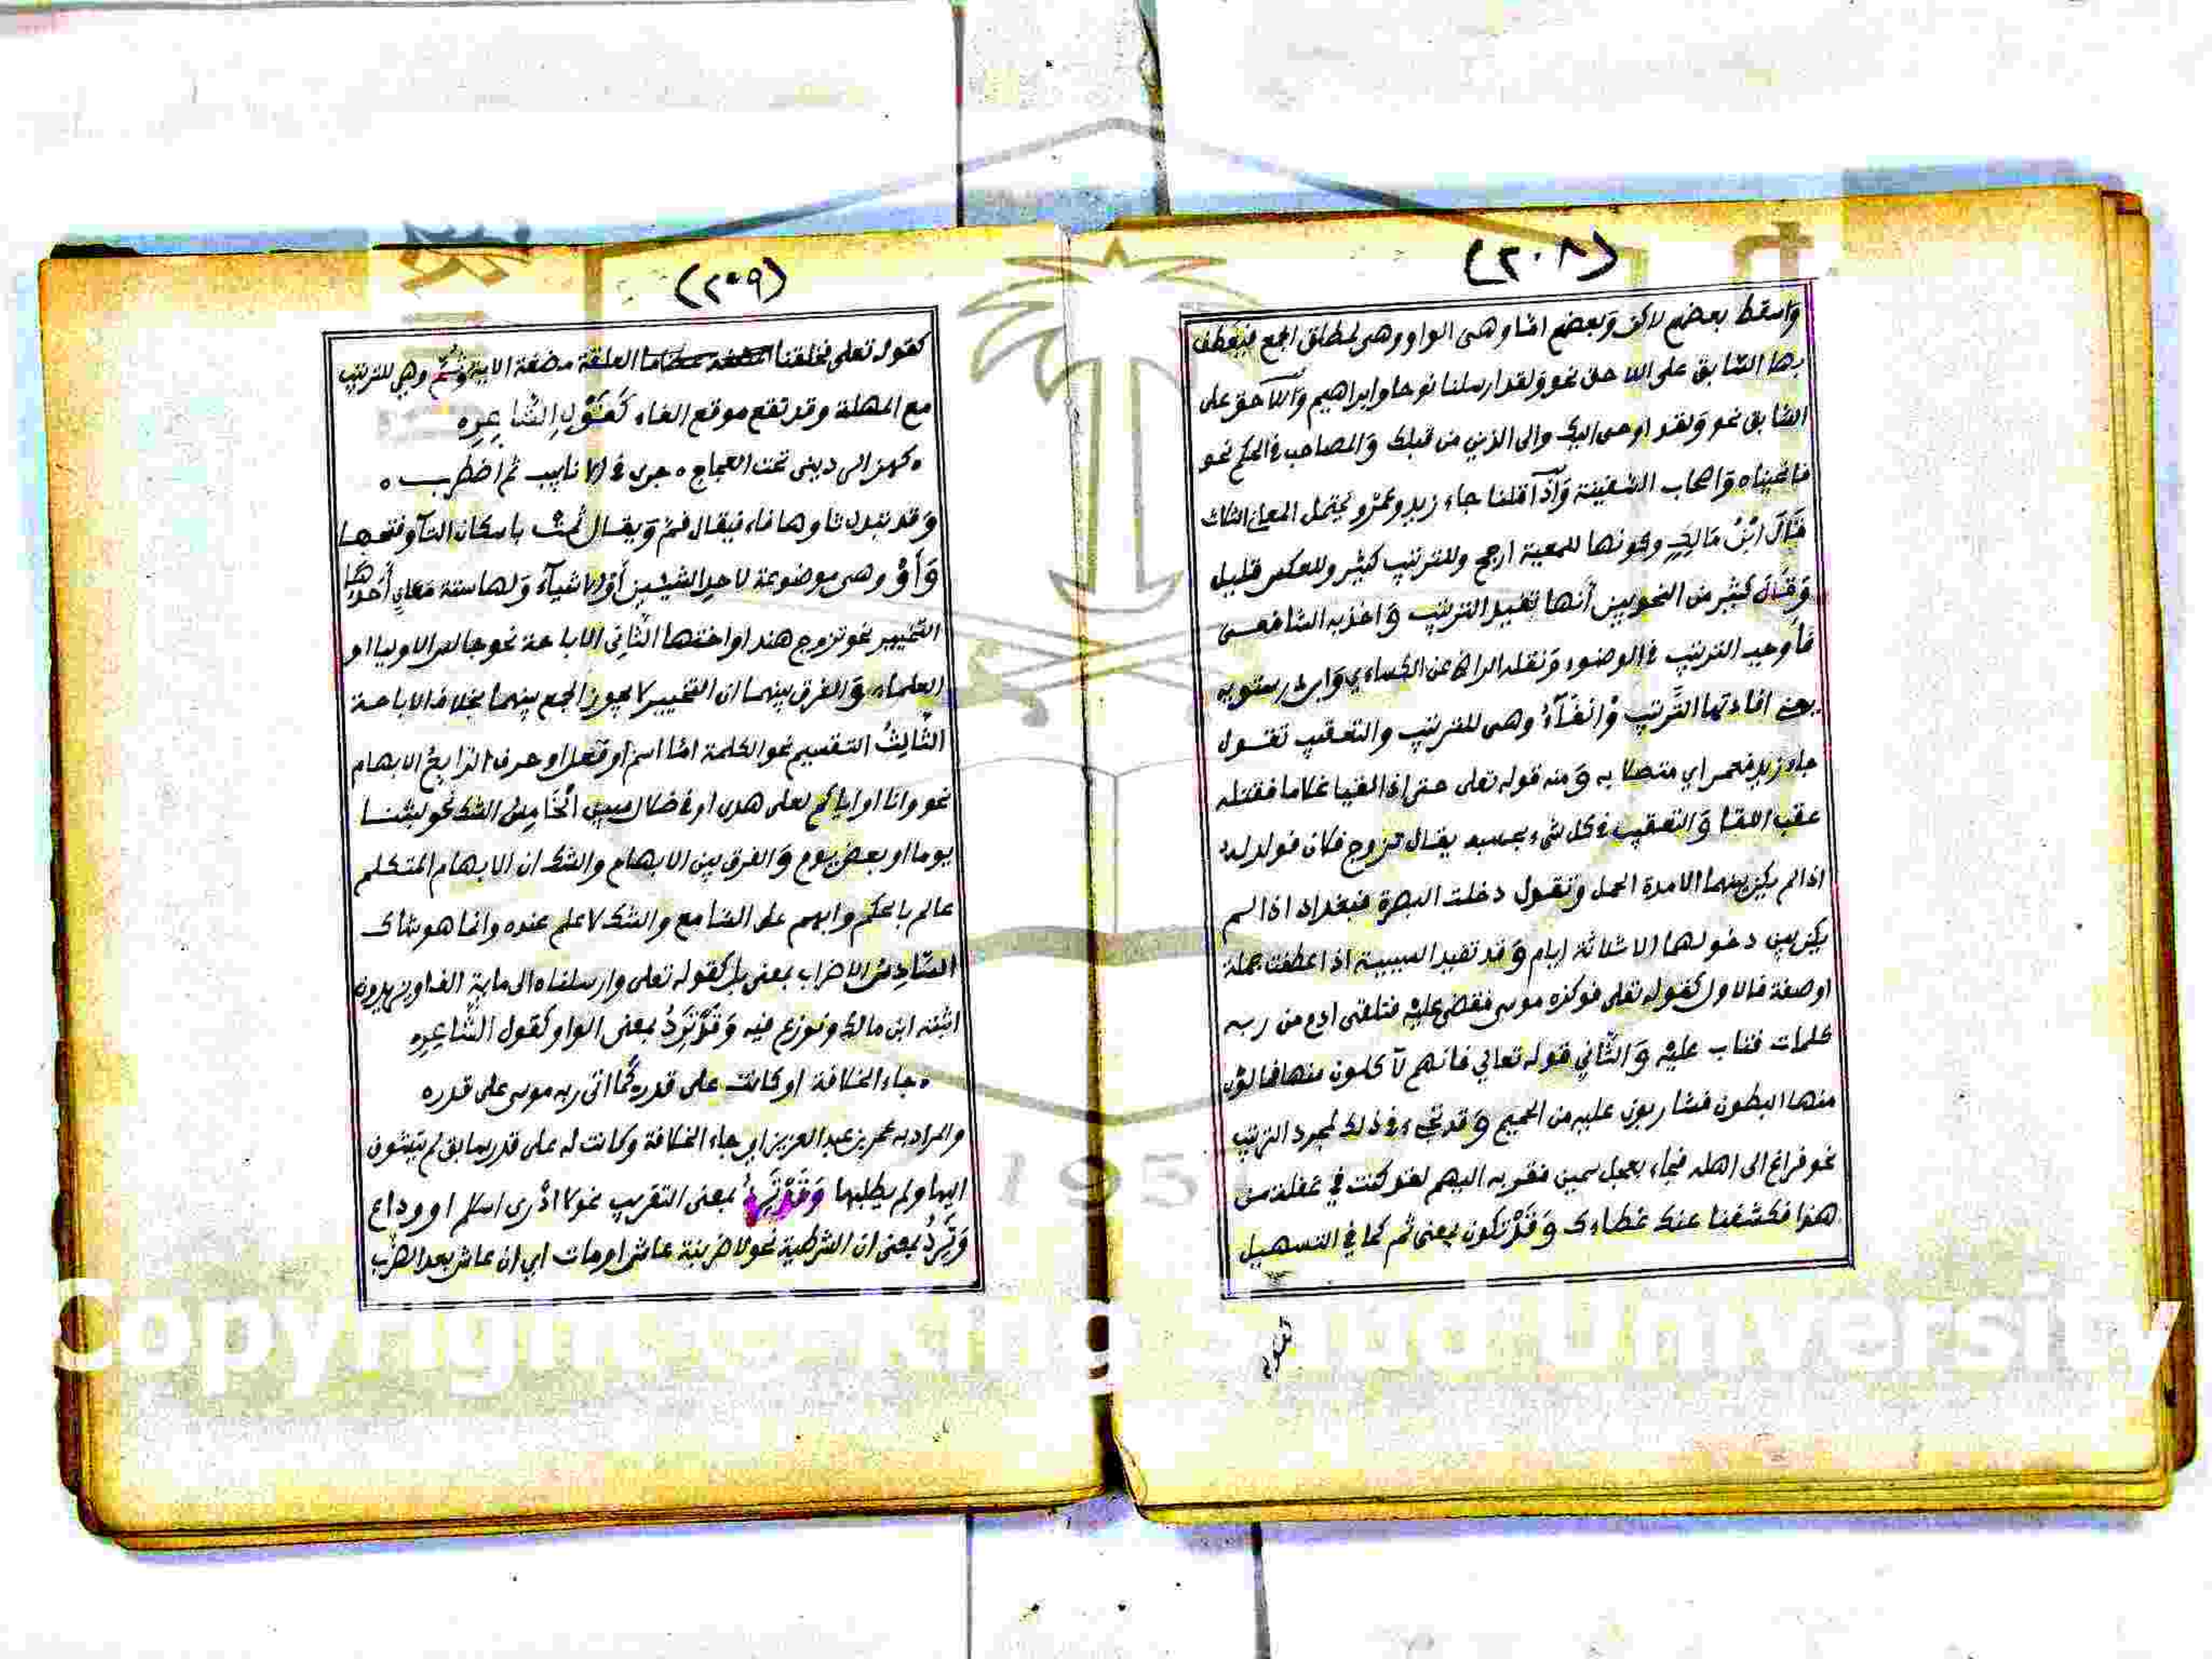 (٢٠٨)
واسقط بعضهم لاكن وبعضهم اما وهى الواو وهى لمطلق الجمع فيعطف
بها السابق على اللاحق نحو ولقد ارسلنا نوحا وابراهيم واللاحق على
السابق نحو ولقد اوحى اليك والى الذين من قبلك والمصاحب فى الحكم نحو
فانجيناه واصحاب السفينة واذا قلنا جاء زيد وعمرو يحتمل المعاني الثلاث
قال ابن مالك وكونها للمعية ارجح وللترتيب كثير وللعكس قليل
وقال كثير من النحويين أنها تفيد الترتيب واخذ به الشافعى
فأوجب الترتيب فى الوضوء ونقله عن الكساءي وابن درستويه
يعنى افادتها الترتيب والفاء وهى للترتيب والتعقيب تقول
جاء زيد فعمر اي متصلا به ومنه قوله تعلى حتى اذا لقيا غلاما فقتله
عقب اللقا والتعقيب فى كل شىء بحسبه يقال تزوج فلان فولد له
اذا لم يكن بينهما الا مدة الحمل وتقول دخلت البصرة فبغداد اذا لم
يكن بين دخولهما الا ثلاثة ايام وقد تفيد السببية اذا عطفت جملة
او صفة فالاول كقوله تعلى فوكزه موسى فقضى عليه فتلقى ادم من ربه
كلمات فتاب عليه والثاني قوله تعالي فانهم لآكلون منها فمالؤن
منها البطون فشاربون عليه من الحميم وقد تجىء فى ذلك لمجرد الترتيب
نحو فراغ الى اهله فجاء بعجل سمين فقربه اليهم لقد كنت في غفلة من
هذا فكشفنا عنك غطاءك وقد تكون بمعنى ثم كما في التسهيل
كقوله
(٢٠٩)
كقوله تعلى فخلقنا العلقة مضغة الاية وثم وهي للترتيب
مع المهلة وقد تقع موقع الفاء كقول الشاعره
ه كهز الرديني تحت العجاج ه جرى فى الانابيب ثم اضطرب ه
وقد تبدل ثاوها فاء فيقال فم ويقال ثمت باسكان التآ وفتحها
وأو وهى موضوعة لاحد الشيئين أو الاشيآء ولها ستة معان أحدها
التخيير نحو تزوج هندا او اختها الثانى الاباحة نحو جالس الاوليا او
العلماء والفرق بينهما ان التخيير لا يجوز الجمع بينهما بخلاف الاباحة
الثالث التقسيم نحو الكلمة اما اسم او فعل او حرف الرابع الابهام
نحو وانا او اياكم لعلى هدى او فى ضلال مبين الخامس الشك نحو لبثنا
يوما او بعض يوم والفرق بين الابهام والشك ان الابهام المتكلم
عالم بالحكم وابهم على السامع والشك لا علم عنده وانما هو شاك
السادس الاضراب بمعنى بل كقوله تعلى وارسلناه الى ماية الف او يزيدون
اثبته ابن مالك ونوزع فيه وقد ترد بمعنى الواو كقول الشاعره
ه جاء الخلافة او كانت على قدر ه كما اتى ربه موسى على قدره
والمراد به عمر بن عبد العزيز اي جاء الخلافة وكانت له على قدر سابق لم
اليها ولم يطلبها وقد ترد بمعنى التقريب نحو لا ادرى اسلم او وداع
وترد بمعنى ان الشرطية نحو لاضربنه عاش او مات اي ان عاش بعد الضرب
Copyright © King Saud University
195